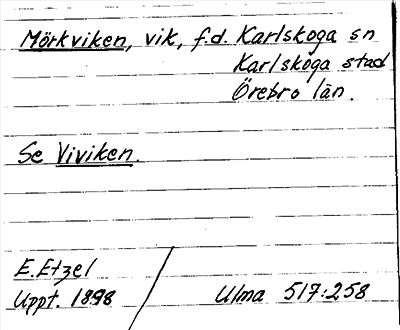 Mörkviken, vik, f.d. Karlskoga sn
Karlskoga stad
Örebro län.
Se Viviken.
E. Etzel
Uppt. 1898
Ulma 517:258